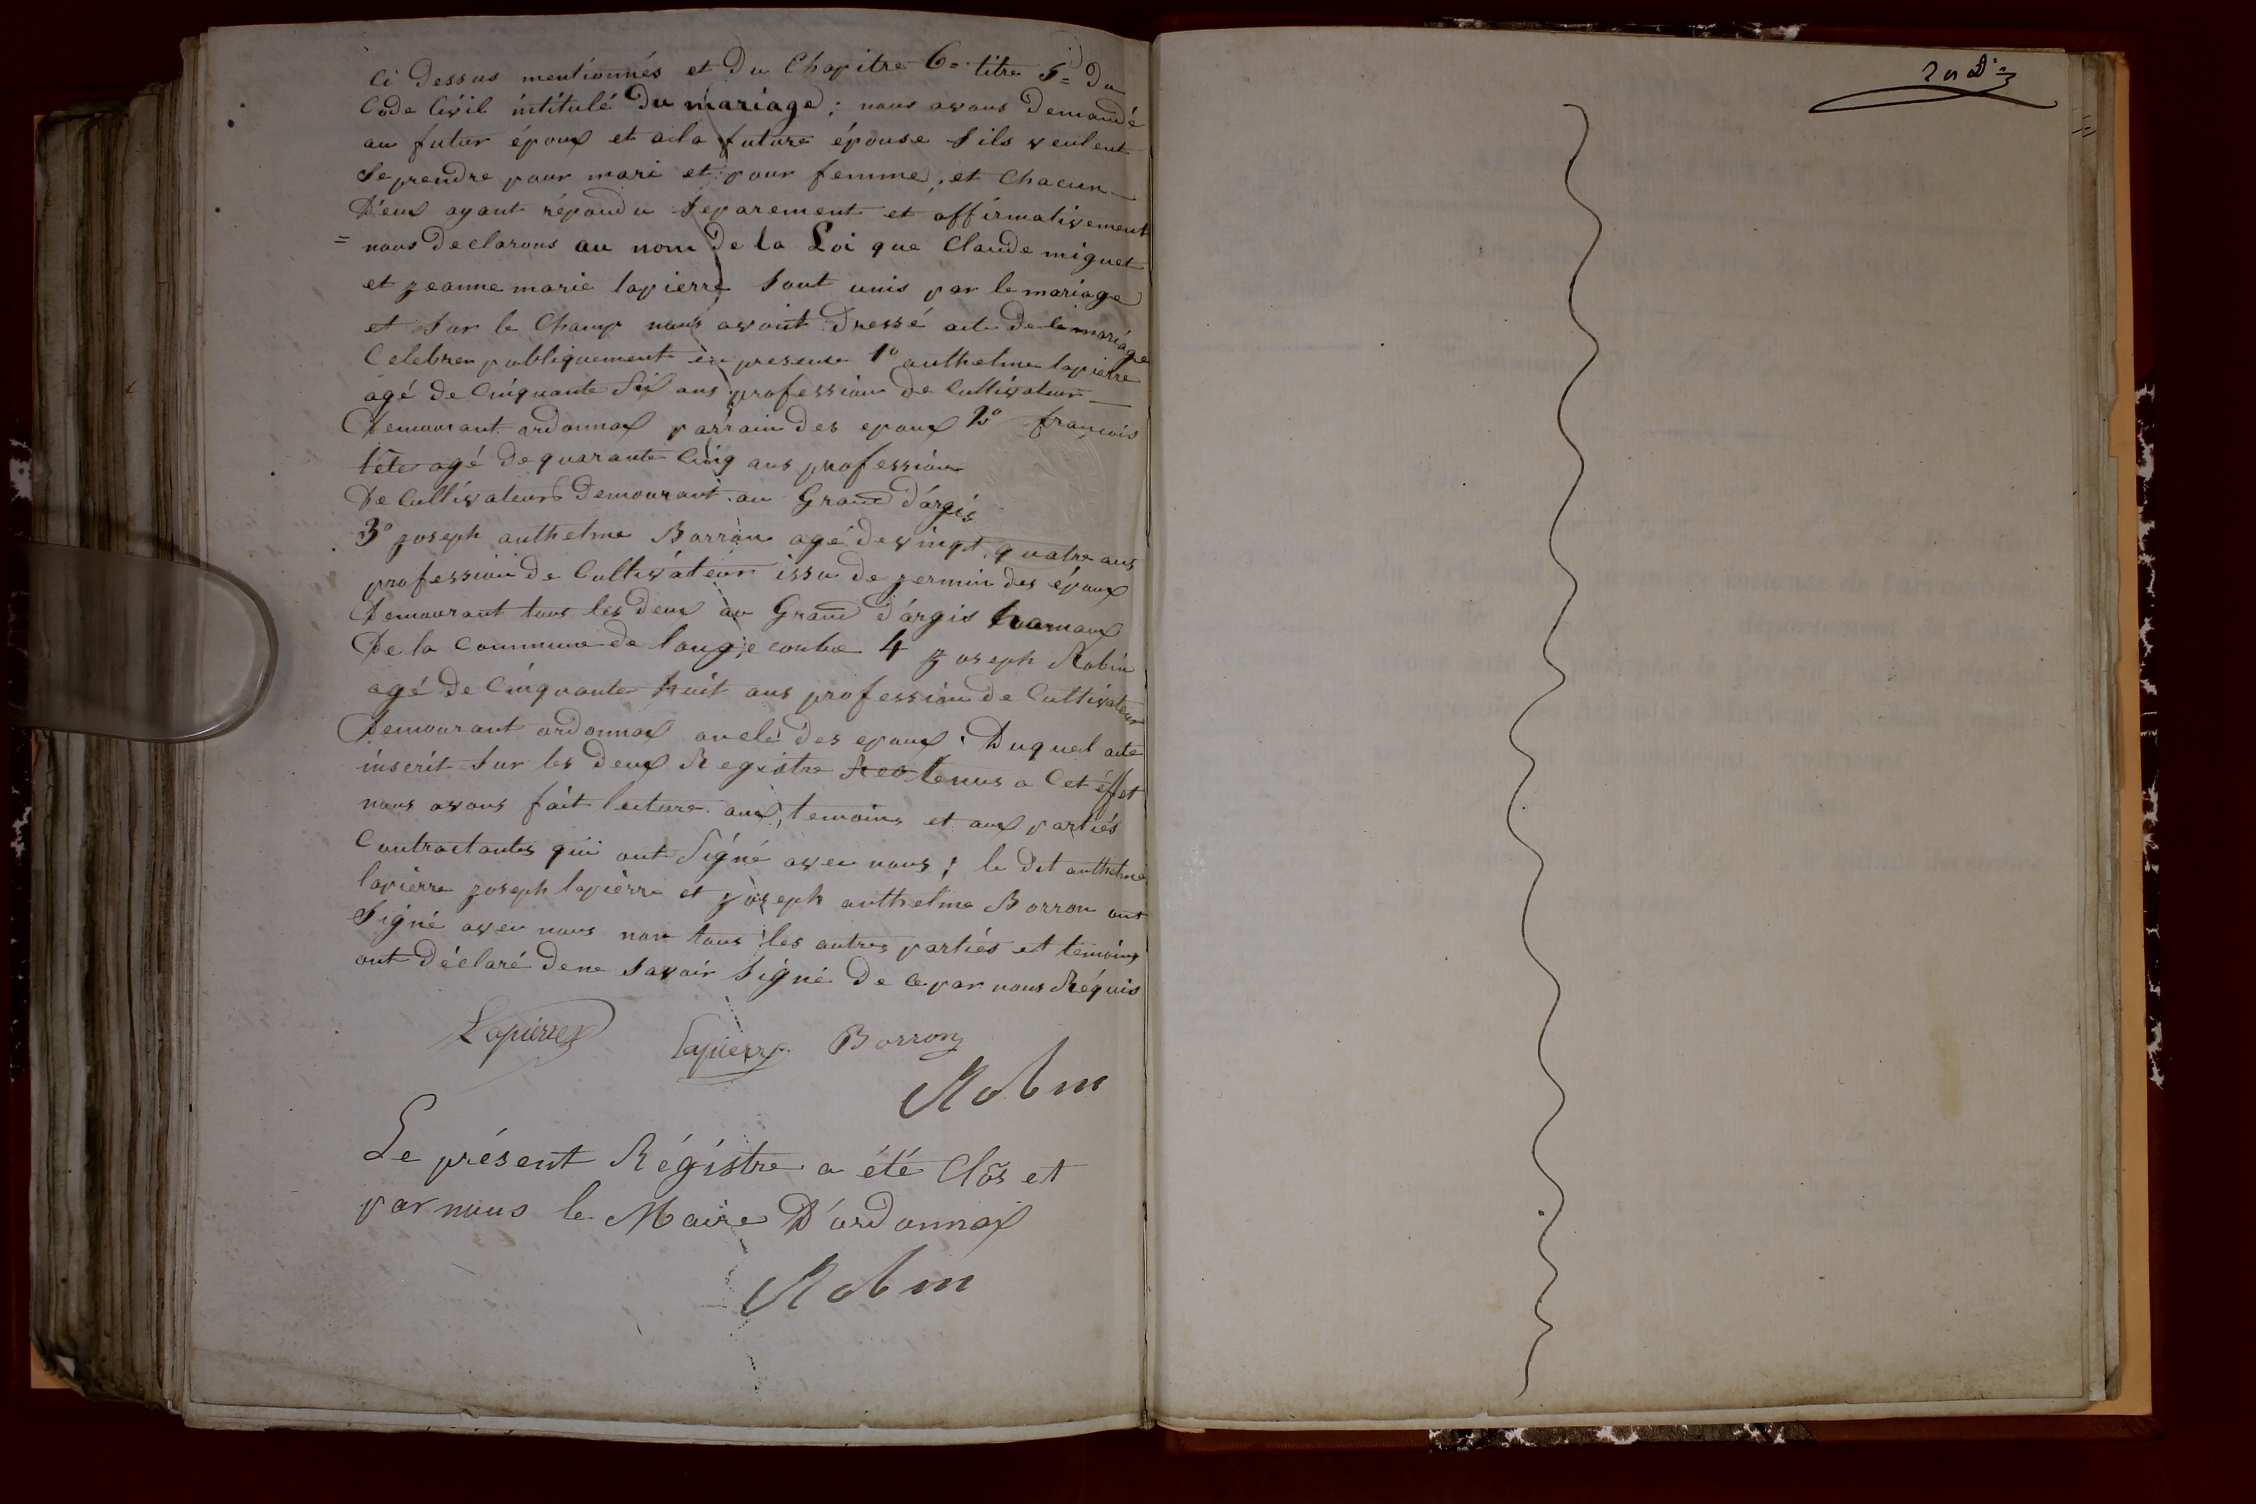 Ci Dessus mentionnés et Du Chapitre 6= titre 5= Du
Code Civil intitulé Du mariage ; nous avons Demandé
au futur époux et ala future épouse S'ils veulent
Se prendre pour mari et pour femme, et Chacun
D'eux ayant répondu Séparement et affirmativement
= nous Declarons au nom De la Loi que Claude miguet
et jeanne marie lapierre Sont unis par le mariage
et Sur le Champ nous avont Dressé acte De le mariage
Celebrer publiquement en presence 1º anthelme lapierre
agé De Cinquante Six ans profession De Cultivateur
Demourant ordonnax parrain des epoux 2º françois
tête agé De quarante Cinq ans profession
De Cultivateur Demourant au Grand D'argis
3º joseph anthelme Borron agé De vingt quatre ans
profession De Cultivateur issu De germin Des époux
Demourant tous les Deux au Grand D'argis hamaux
De la Commune De longe combe 4 joseph Robin
agé De Cinquante huit ans profession De Cultivateur
Demourant ordonnax oncle Des epoux. Duquel acte
inscrit Sur les Deux Registre Res tenus a Cet éffet
nous avons fait lecture aux temoins et aux partiés
Contractantes qui ont Signé avec nous ; le Dit anthelme
lapierre joseph lapierre et joseph anthelme Borron ont
Signé avec nous non tous les autres partiés et temoins
ont Déclaré De ne Savoir Signé De ce par nous Réquis
Lapierre Lapierre Borron
Robin
Le présent Régistre a été Clôs et
par nous le Maire D'ordonnax
Robin